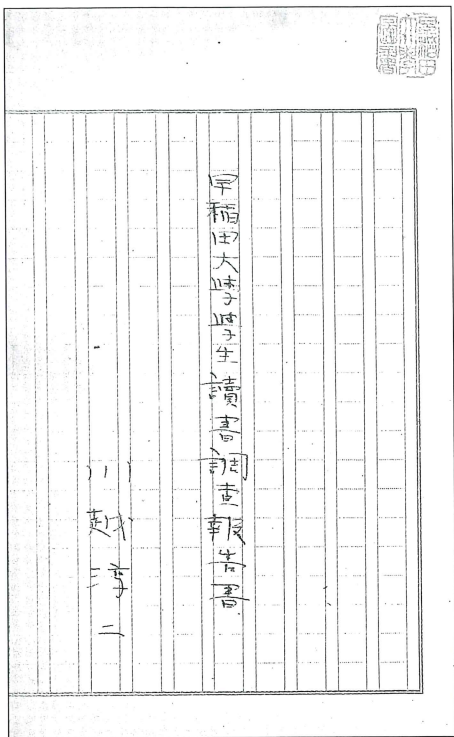 早稲田大学学生讀書調査報告書
川越淳二